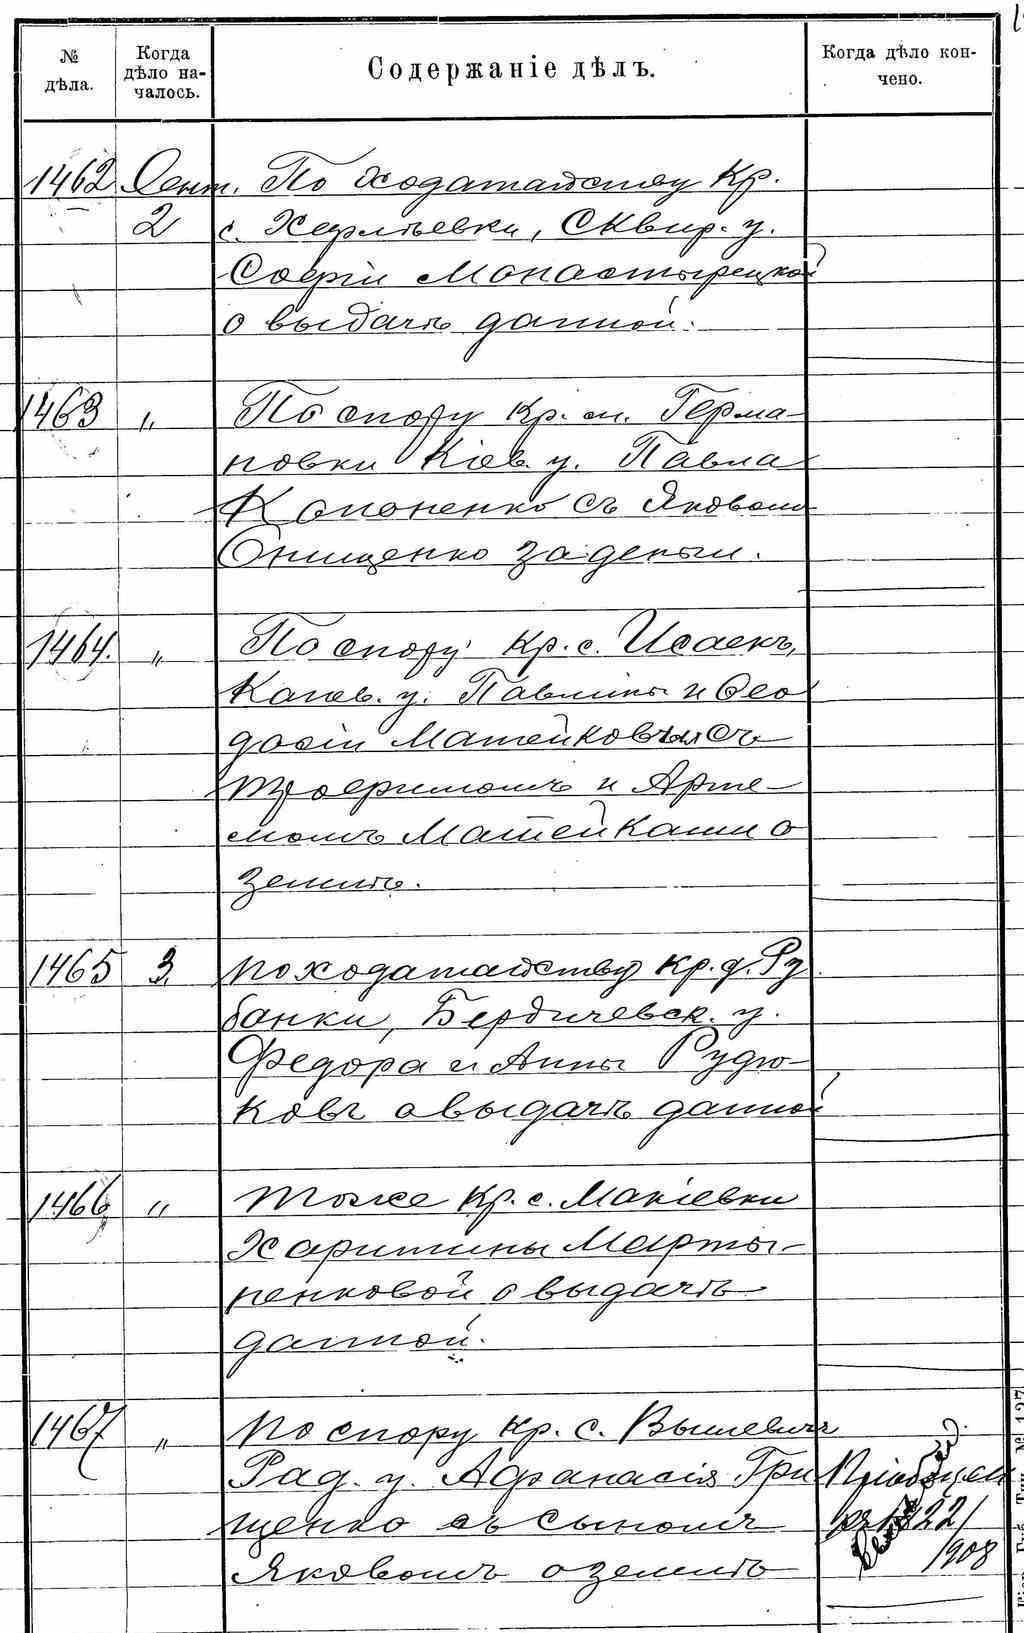 № дѣла.
Когда дѣло началось.
Содержаніе дѣлъ.
Когда дѣло кончено.
1462 Сент. По ходатайству Кр.
2 с. Харлѣевки, Сквир. у.
Софіи Монастырецкой
о выдачѣ данной.
1463 „ По спору Кр. м. Герма-
новки Кіев. у. Павла
Кононенко съ Яковомъ
Онищенко за деньги.
1464. „ По спору Кр. с. Исаекъ,
Канев. у. Павлины и Ѳео
досіи Матейковыхъ съ
Трофимомъ и Арте-
момъ Матейками о
землѣ.
1465 3 По ходатайству кр. д. Ру
банки, Бердичевск. у.
Федора и Анны Рудю-
ковъ о выдачѣ данной
1466 „ Тоже Кр. с. Макіевки
Харитины Марты-
ненковой о выдачѣ
данной.
1467 „ По спору кр. с. Вышевичъ
Рад. у. Афанасія Гри
щенко съ сыномъ
Яковомъ о землѣ
1908